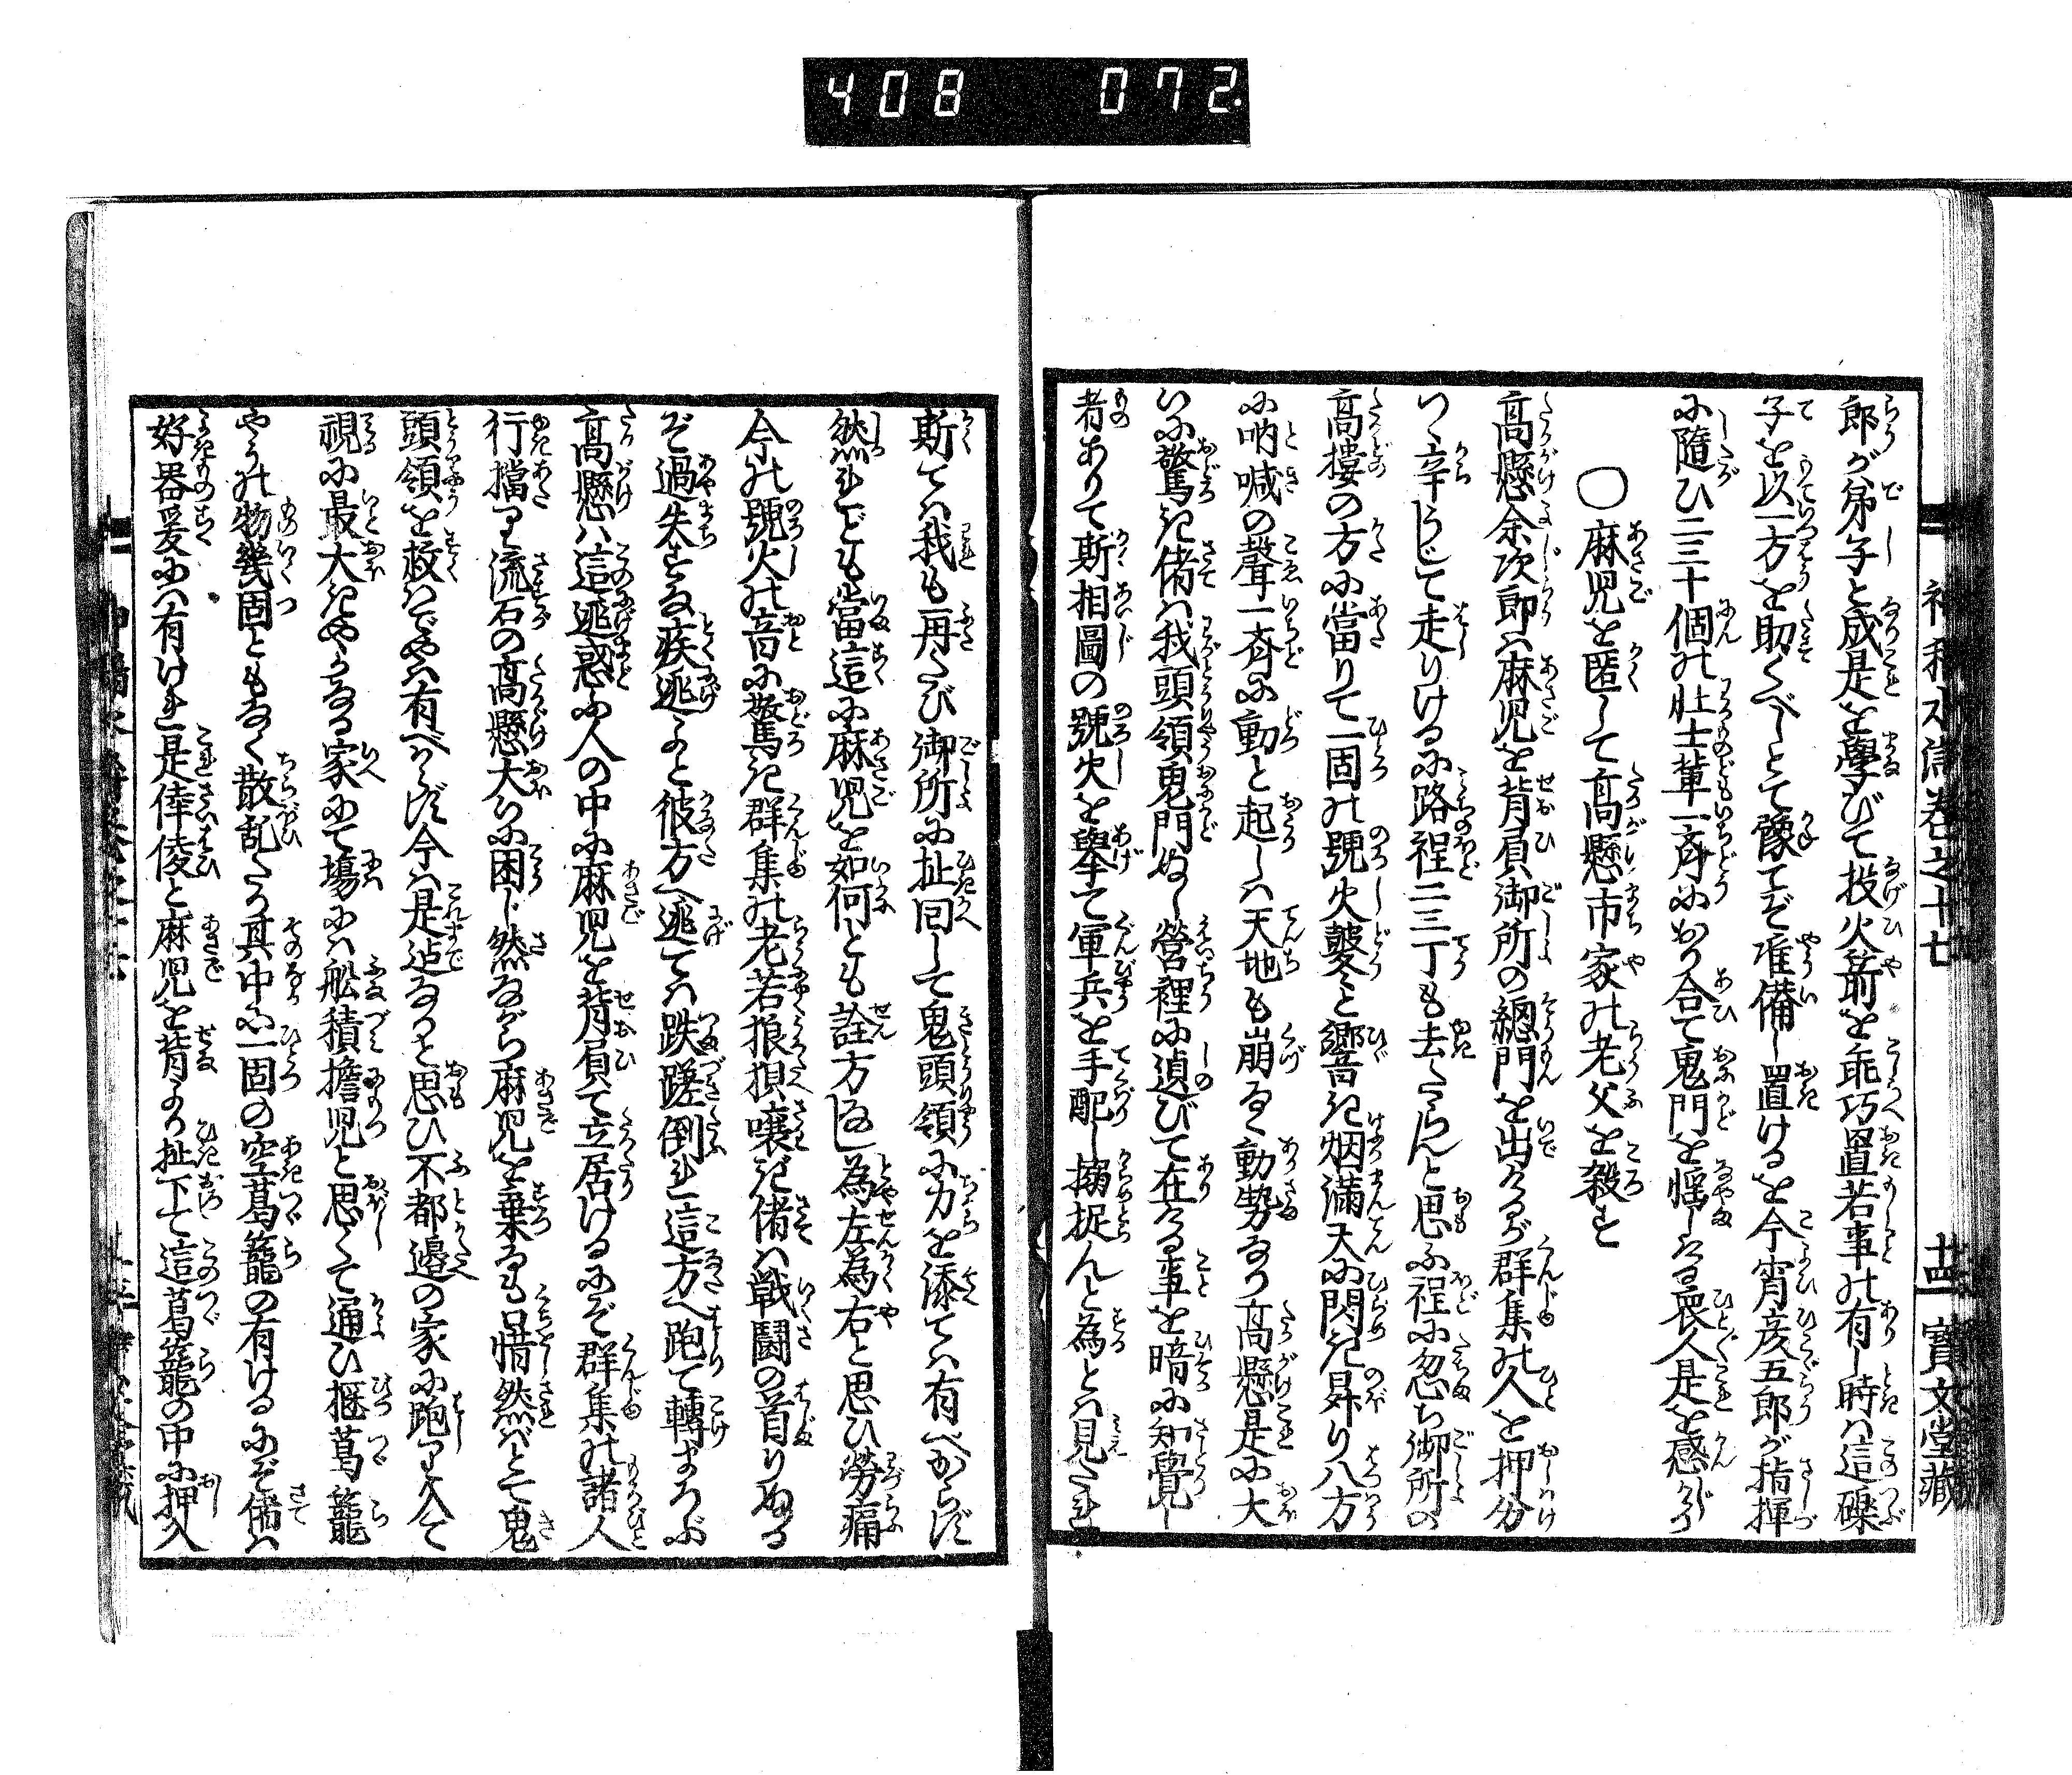 408 072
郎が弟子と成是を學びて投火箭を乖巧置若事の有し時は這礫
子を以一方を助くべしとて豫てぞ准備し置けるを今宵彦五郎が指揮
に隨ひ二三十個の壮士輩一斉におり合て鬼門を悩しける衆人是を感じける
○麻児を匿して高懸市家の老父を殺す
高懸余次郎は麻児を背負御所の總門を出けるが群集の人を押分
つゝ辛うじて走りけるに路程二三丁も去たらんと思ふ程に忽ち御所の
高摟の方に當りて一固の號火鼕と響き烟満天に閃き昇り八方
に吶喊の聲一斉に動と起しは天地も崩るゝ動勢なり高懸是に大
いに驚き偖は我頭領鬼門ぬし營裡に湞びて在ける事を暗に知覺し
者ありて斯相圖の號火を擧て軍兵を手配し搦捉んと為とは見えたれ
斯ては我も再たび御所に扯囘して鬼頭領に力を添ては有べからず
然れども當這に麻児を如何とも詮方なし為左為右と思ひ勞痛
今の號火の音に驚き群集の老若狼狽嚷ぎ偖は戦闘の首りぬる
ぞ過失すな疾逃よと彼方へ逃ては跌蹉倒れ這方へ跑て轉まろぶ
高懸は這逃惑ふ人の中に麻児を背負て立居けるにぞ群集の諸人
行擋り流石の高懸大いに困じ然ながら麻児を棄なも口惜然ばとて鬼
頭領を救はでやは有べからず今は是迠なりと思ひ不都邉の家に跑り入て
視に最大きやかなる家にて塲には舩積擔児と思しくて通ひ櫃葛籠
やうの物幾固ともなく散乱たり其中に一固の空葛籠の有けるにぞ偖は
好器爰には有けれ是倖倰と麻児を背より扯下て這葛籠の中に押入
十四 寶文堂藏